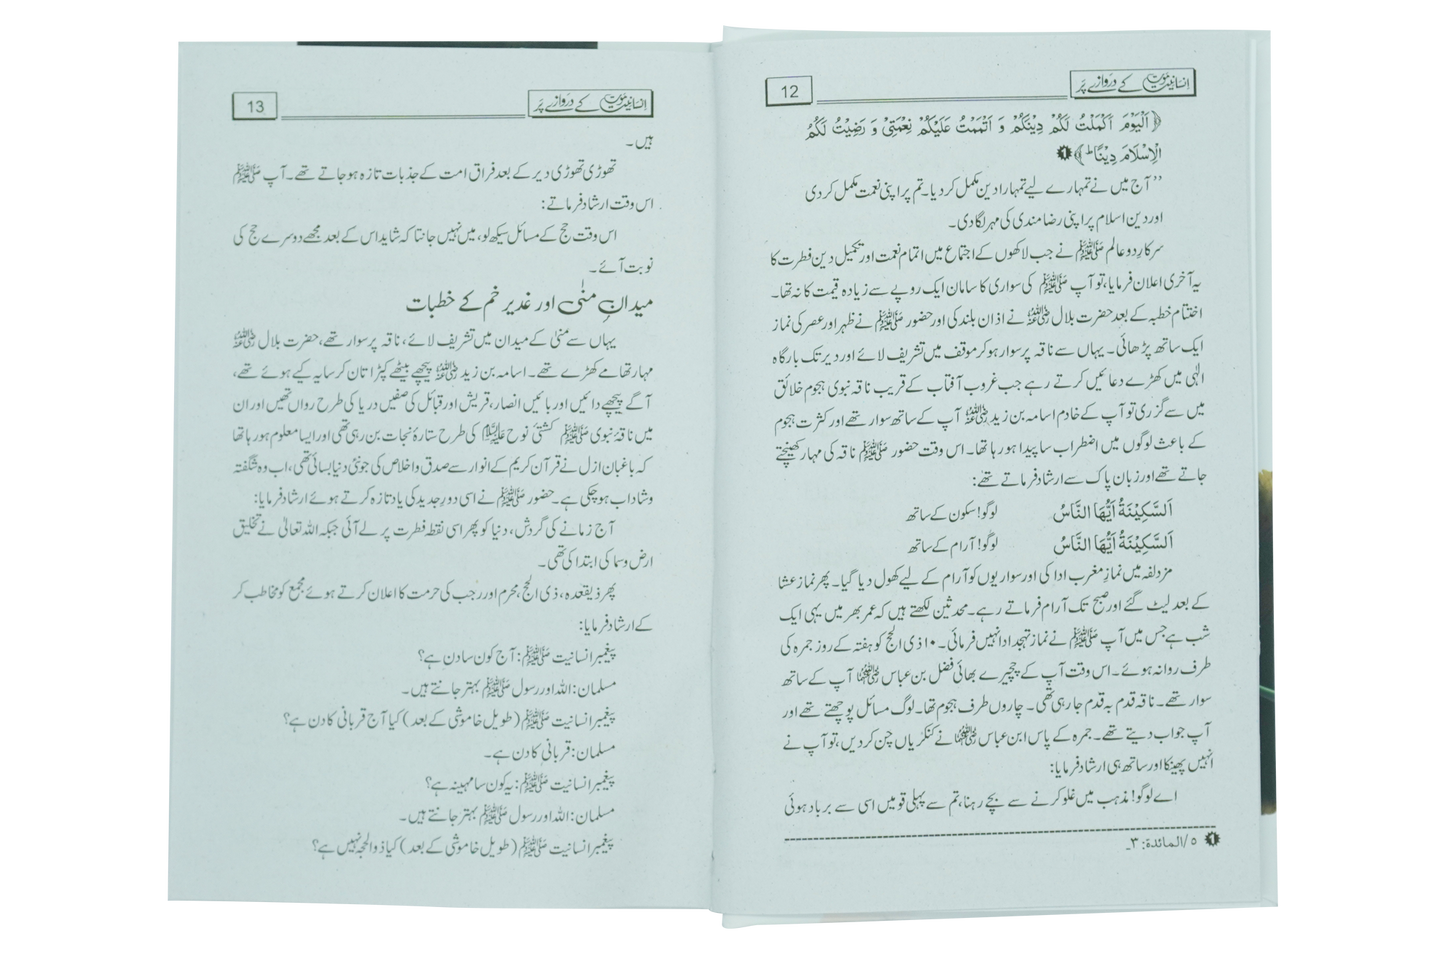 انسانیت موت کے دروازے پر
12
﴿اَلْيَوْمَ اَكْمَلْتُ لَكُمْ دِيْنَكُمْ وَ اَتْمَمْتُ عَلَيْكُمْ نِعْمَتِيْ وَ رَضِيْتُ لَكُمُ
الْاِسْلَامَ دِيْنًا ؕ﴾ ❶
’’آج میں نے تمہارے لیے تمہارا دین مکمل کر دیا۔ تم پر اپنی نعمت مکمل کر دی
اور دین اسلام پر اپنی رضا مندی کی مہر لگا دی۔
سرکار دو عالم ﷺ نے جب لاکھوں کے اجتماع میں اتمام نعمت اور تکمیل دین فطرت کا
یہ آخری اعلان فرمایا، تو آپ ﷺ کی سواری کا سامان ایک روپے سے زیادہ قیمت کا نہ تھا۔
اختتام خطبہ کے بعد حضرت بلال رضی اللہ عنہ نے اذان بلند کی اور حضور ﷺ نے ظہر اور عصر کی نماز
ایک ساتھ پڑھائی۔ یہاں سے ناقہ پر سوار ہو کر موقف میں تشریف لائے اور دیر تک بارگاہ
الٰہی میں کھڑے دعائیں کرتے رہے جب غروب آفتاب کے قریب ناقہ نبوی ہجوم خلائق
میں سے گزری تو آپ کے خادم اسامہ بن زید رضی اللہ عنہ آپ کے ساتھ سوار تھے اور کثرت ہجوم
کے باعث لوگوں میں اضطراب سا پیدا ہو رہا تھا۔ اس وقت حضور ﷺ ناقہ کی مہار کھینچتے
جاتے تھے اور زبان پاک سے ارشاد فرماتے تھے:
اَلسَّكِيْنَةُ اَيُّهَا النَّاسُ لوگو! سکون کے ساتھ
اَلسَّكِيْنَةُ اَيُّهَا النَّاسُ لوگو! آرام کے ساتھ
مزدلفہ میں نماز مغرب ادا کی اور سواریوں کو آرام کے لیے کھول دیا گیا۔ پھر نماز عشا
کے بعد لیٹ گئے اور صبح تک آرام فرماتے رہے۔ محدثین لکھتے ہیں کہ عمر بھر میں یہی ایک
شب ہے جس میں آپ ﷺ نے نماز تہجد ادا نہیں فرمائی۔ ۱۰ ذی الحج کو ہفتہ کے روز جمرہ کی
طرف روانہ ہوئے۔ اس وقت آپ کے چچیرے بھائی فضل بن عباس رضی اللہ عنہما آپ کے ساتھ
سوار تھے۔ ناقہ قدم بہ قدم جا رہی تھی۔ چاروں طرف ہجوم تھا۔ لوگ مسائل پوچھتے تھے اور
آپ جواب دیتے تھے۔ جمرہ کے پاس ابن عباس رضی اللہ عنہما نے کنکریاں چن کر دیں، تو آپ نے
انہیں پھینکا اور ساتھ ہی ارشاد فرمایا:
اے لوگو! مذہب میں غلو کرنے سے بچے رہنا، تم سے پہلی قومیں اسی سے برباد ہوئی
❶ ۵/المائدۃ: ۳۔
انسانیت موت کے دروازے پر
13
ہیں۔
تھوڑی تھوڑی دیر کے بعد فراق امت کے جذبات تازہ ہو جاتے تھے۔ آپ ﷺ
اس وقت ارشاد فرماتے:
اس وقت حج کے مسائل سیکھ لو، میں نہیں جانتا کہ شاید اس کے بعد مجھے دوسرے حج کی
نوبت آئے۔
میدانِ منٰی اور غدیر خم کے خطبات
یہاں سے منیٰ کے میدان میں تشریف لائے، ناقہ پر سوار تھے، حضرت بلال رضی اللہ عنہ
مہار تھامے کھڑے تھے۔ اسامہ بن زید رضی اللہ عنہ پیچھے بیٹھے کپڑا تان کر سایہ کیے ہوئے تھے،
آگے پیچھے دائیں اور بائیں انصار، قریش اور قبائل کی صفیں دریا کی طرح رواں تھیں اور ان
میں ناقۂ نبوی ﷺ کشتی نوح علیہ السلام کی طرح ستارۂ نجات بن رہی تھی اور ایسا معلوم ہو رہا تھا
کہ باغبان ازل نے قرآن کریم کے انوار سے صدق و اخلاص کی جو نئی دنیا بسائی تھی، اب وہ شگفتہ
و شاداب ہو چکی ہے۔ حضور ﷺ نے اسی دور جدید کی یاد تازہ کرتے ہوئے ارشاد فرمایا:
آج زمانے کی گردش، دنیا کو پھر اسی نقطہ فطرت پر لے آئی جبکہ اللہ تعالیٰ نے تخلیق
ارض و سما کی ابتدا کی تھی۔
پھر ذیقعدہ، ذی الحج، محرم اور رجب کی حرمت کا اعلان کرتے ہوئے مجمع کو مخاطب کر
کے ارشاد فرمایا:
پیغمبر انسانیت ﷺ: آج کون سا دن ہے؟
مسلمان: اللہ اور رسول ﷺ بہتر جانتے ہیں۔
پیغمبر انسانیت ﷺ (طویل خاموشی کے بعد) کیا آج قربانی کا دن ہے؟
مسلمان: قربانی کا دن ہے۔
پیغمبر انسانیت ﷺ: یہ کون سا مہینہ ہے؟
مسلمان: اللہ اور رسول ﷺ بہتر جانتے ہیں۔
پیغمبر انسانیت ﷺ (طویل خاموشی کے بعد) کیا ذوالحجہ نہیں ہے؟